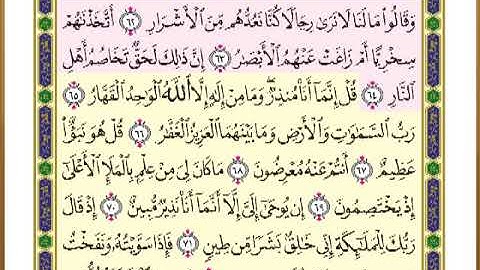 وَقَالُوا۟ مَالَنَا لَا نَرَىٰ رِجَالًا كُنَّا نَعُدُّهُم مِّنَ ٱلْأَشْرَارِ ٦٢ أَتَّخَذْنَٰهُمْ
سِخْرِيًّا أَمْ زَاغَتْ عَنْهُمُ ٱلْأَبْصَٰرُ ٦٣ إِنَّ ذَٰلِكَ لَحَقٌّ تَخَاصُمُ أَهْلِ
ٱلنَّارِ ٦٤ قُلْ إِنَّمَآ أَنَا۠ مُنذِرٌ ۖ وَمَا مِنْ إِلَٰهٍ إِلَّا ٱللَّهُ ٱلْوَٰحِدُ ٱلْقَهَّارُ ٦٥
رَبُّ ٱلسَّمَٰوَٰتِ وَٱلْأَرْضِ وَمَا بَيْنَهُمَا ٱلْعَزِيزُ ٱلْغَفَّٰرُ ٦٦ قُلْ هُوَ نَبَؤٌا۟
عَظِيمٌ ٦٧ أَنتُمْ عَنْهُ مُعْرِضُونَ ٦٨ مَا كَانَ لِىَ مِنْ عِلْمٍۭ بِٱلْمَلَإِ ٱلْأَعْلَىٰٓ
إِذْ يَخْتَصِمُونَ ٦٩ إِن يُوحَىٰٓ إِلَىَّ إِلَّآ أَنَّمَآ أَنَا۠ نَذِيرٌ مُّبِينٌ ٧٠ إِذْ قَالَ
رَبُّكَ لِلْمَلَٰٓئِكَةِ إِنِّى خَٰلِقٌۢ بَشَرًا مِّن طِينٍ ٧١ فَإِذَا سَوَّيْتُهُۥ وَنَفَخْتُ